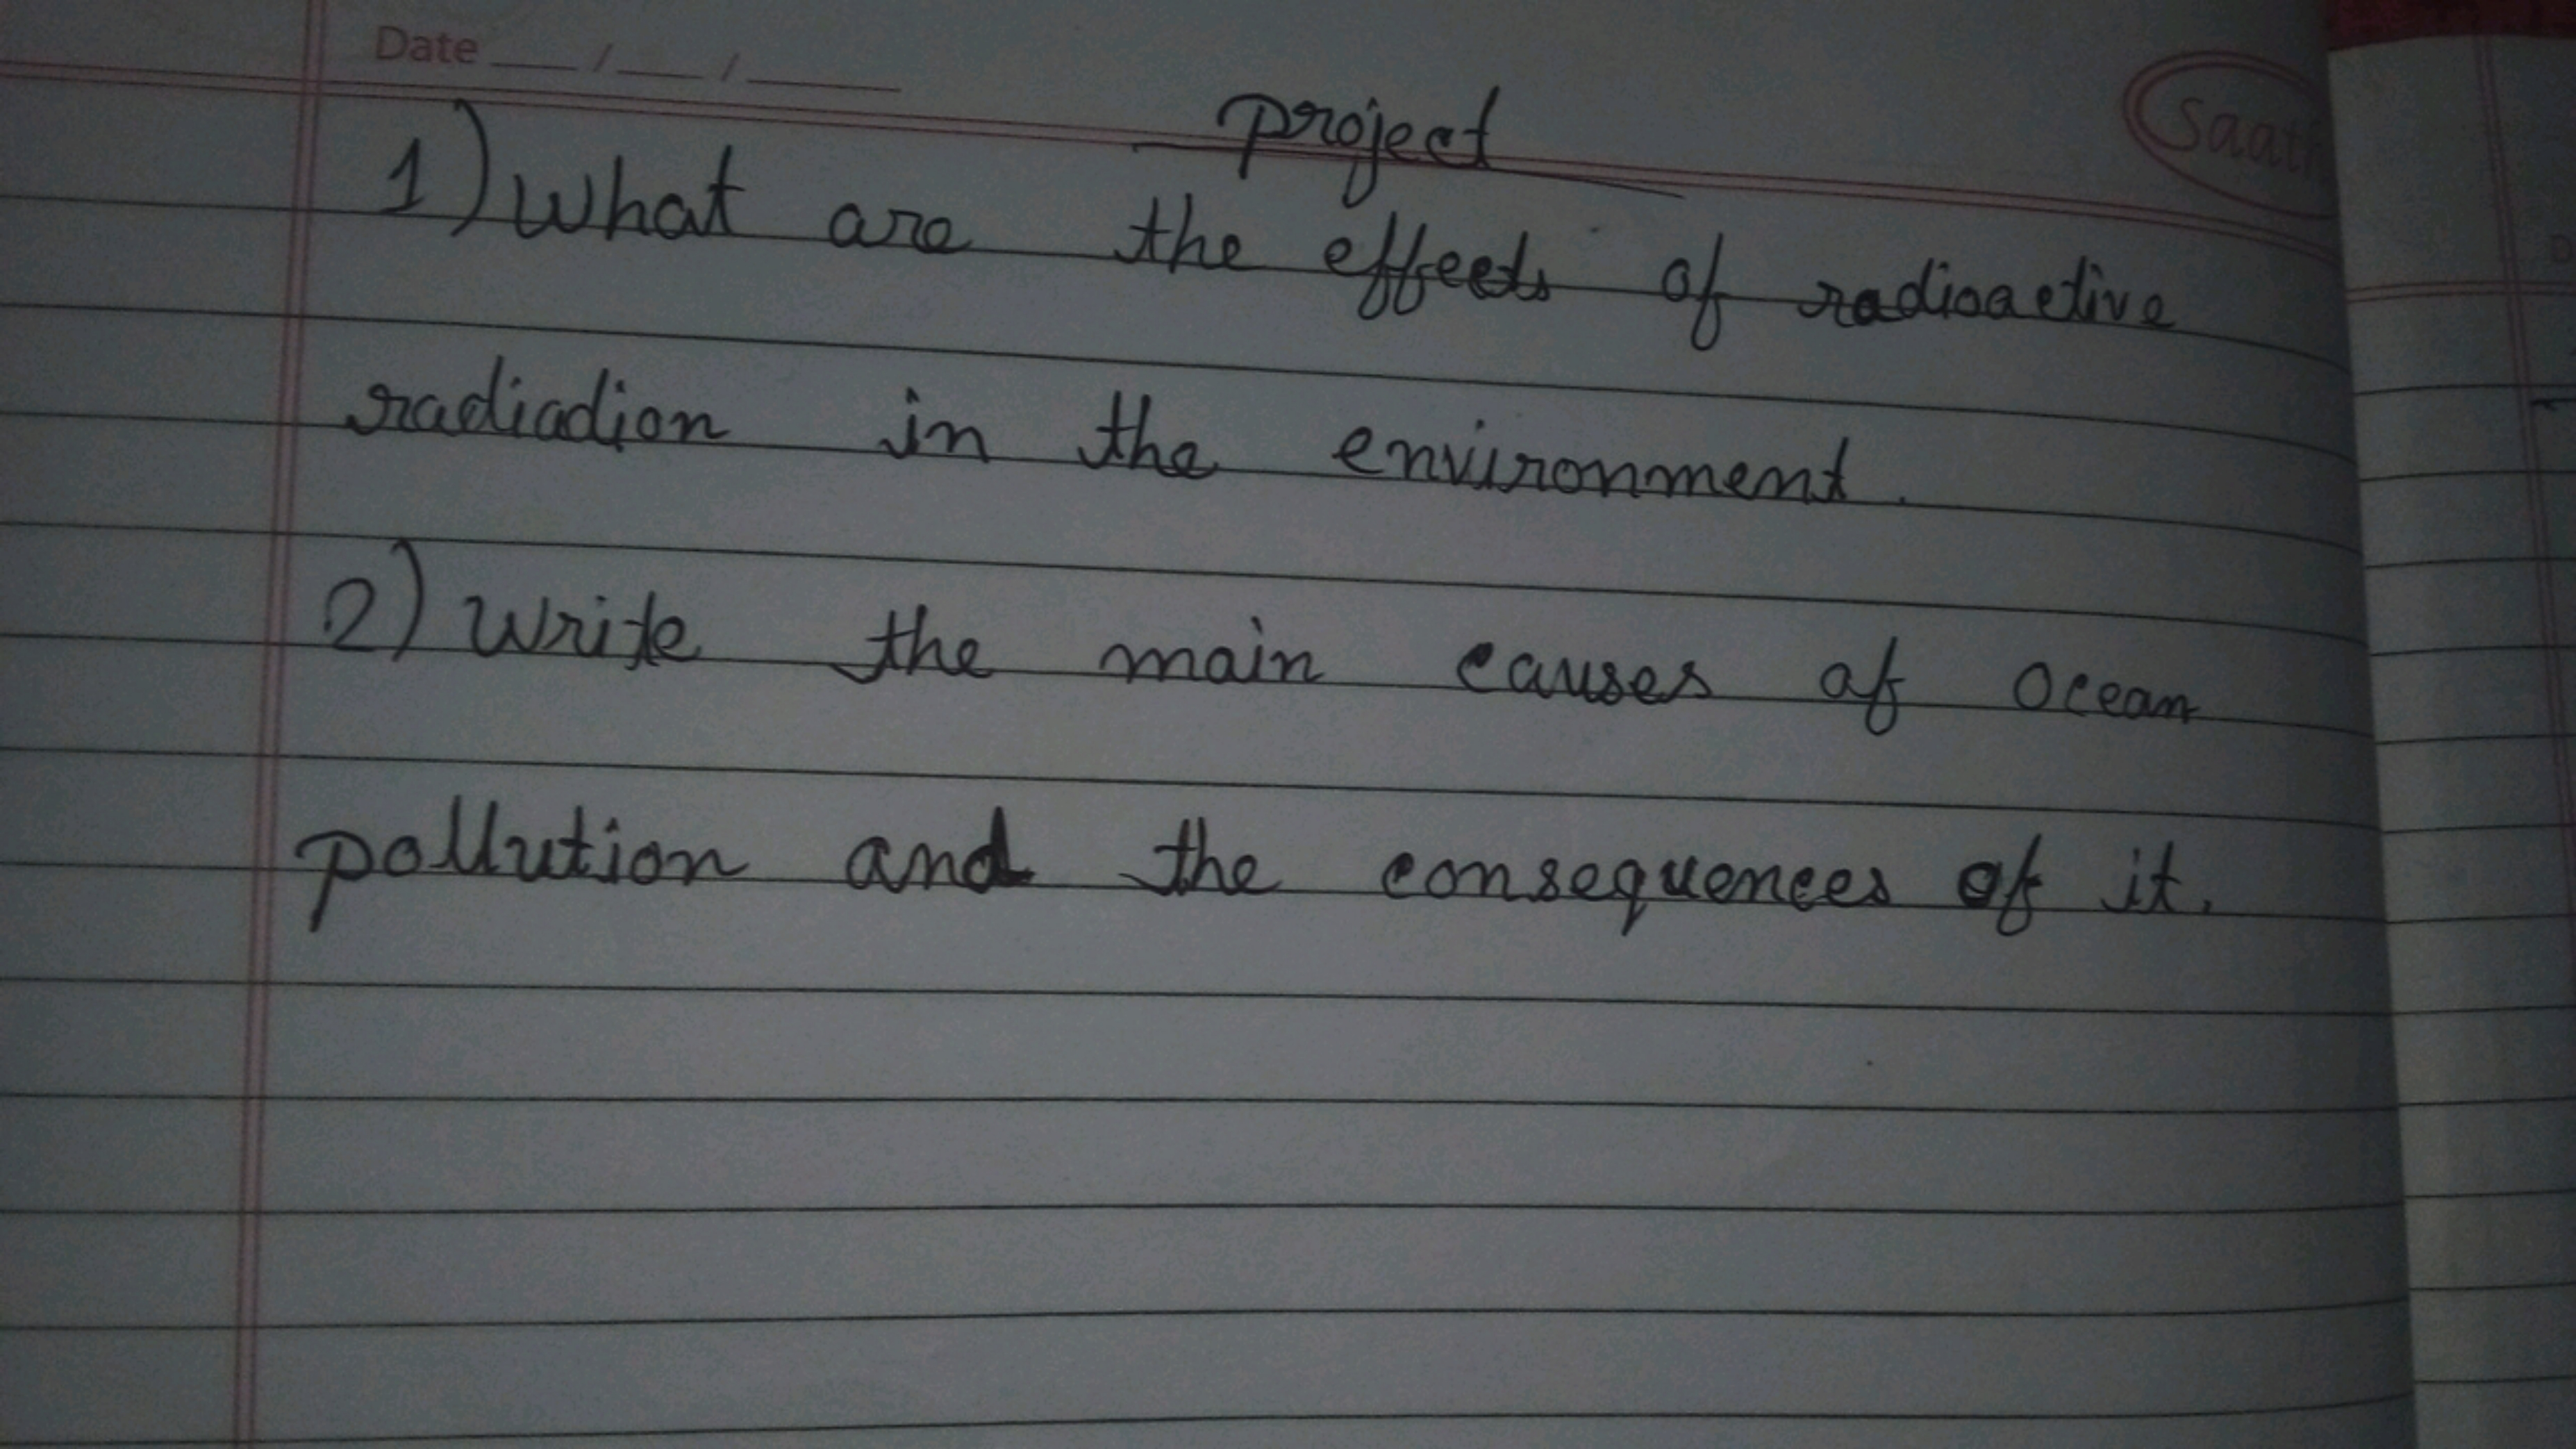 Date __/__/____
project
1) What are the effects of radioactive
radiadion in the environment.
2) Write the main causes of ocean
pollution and the consequences of it.